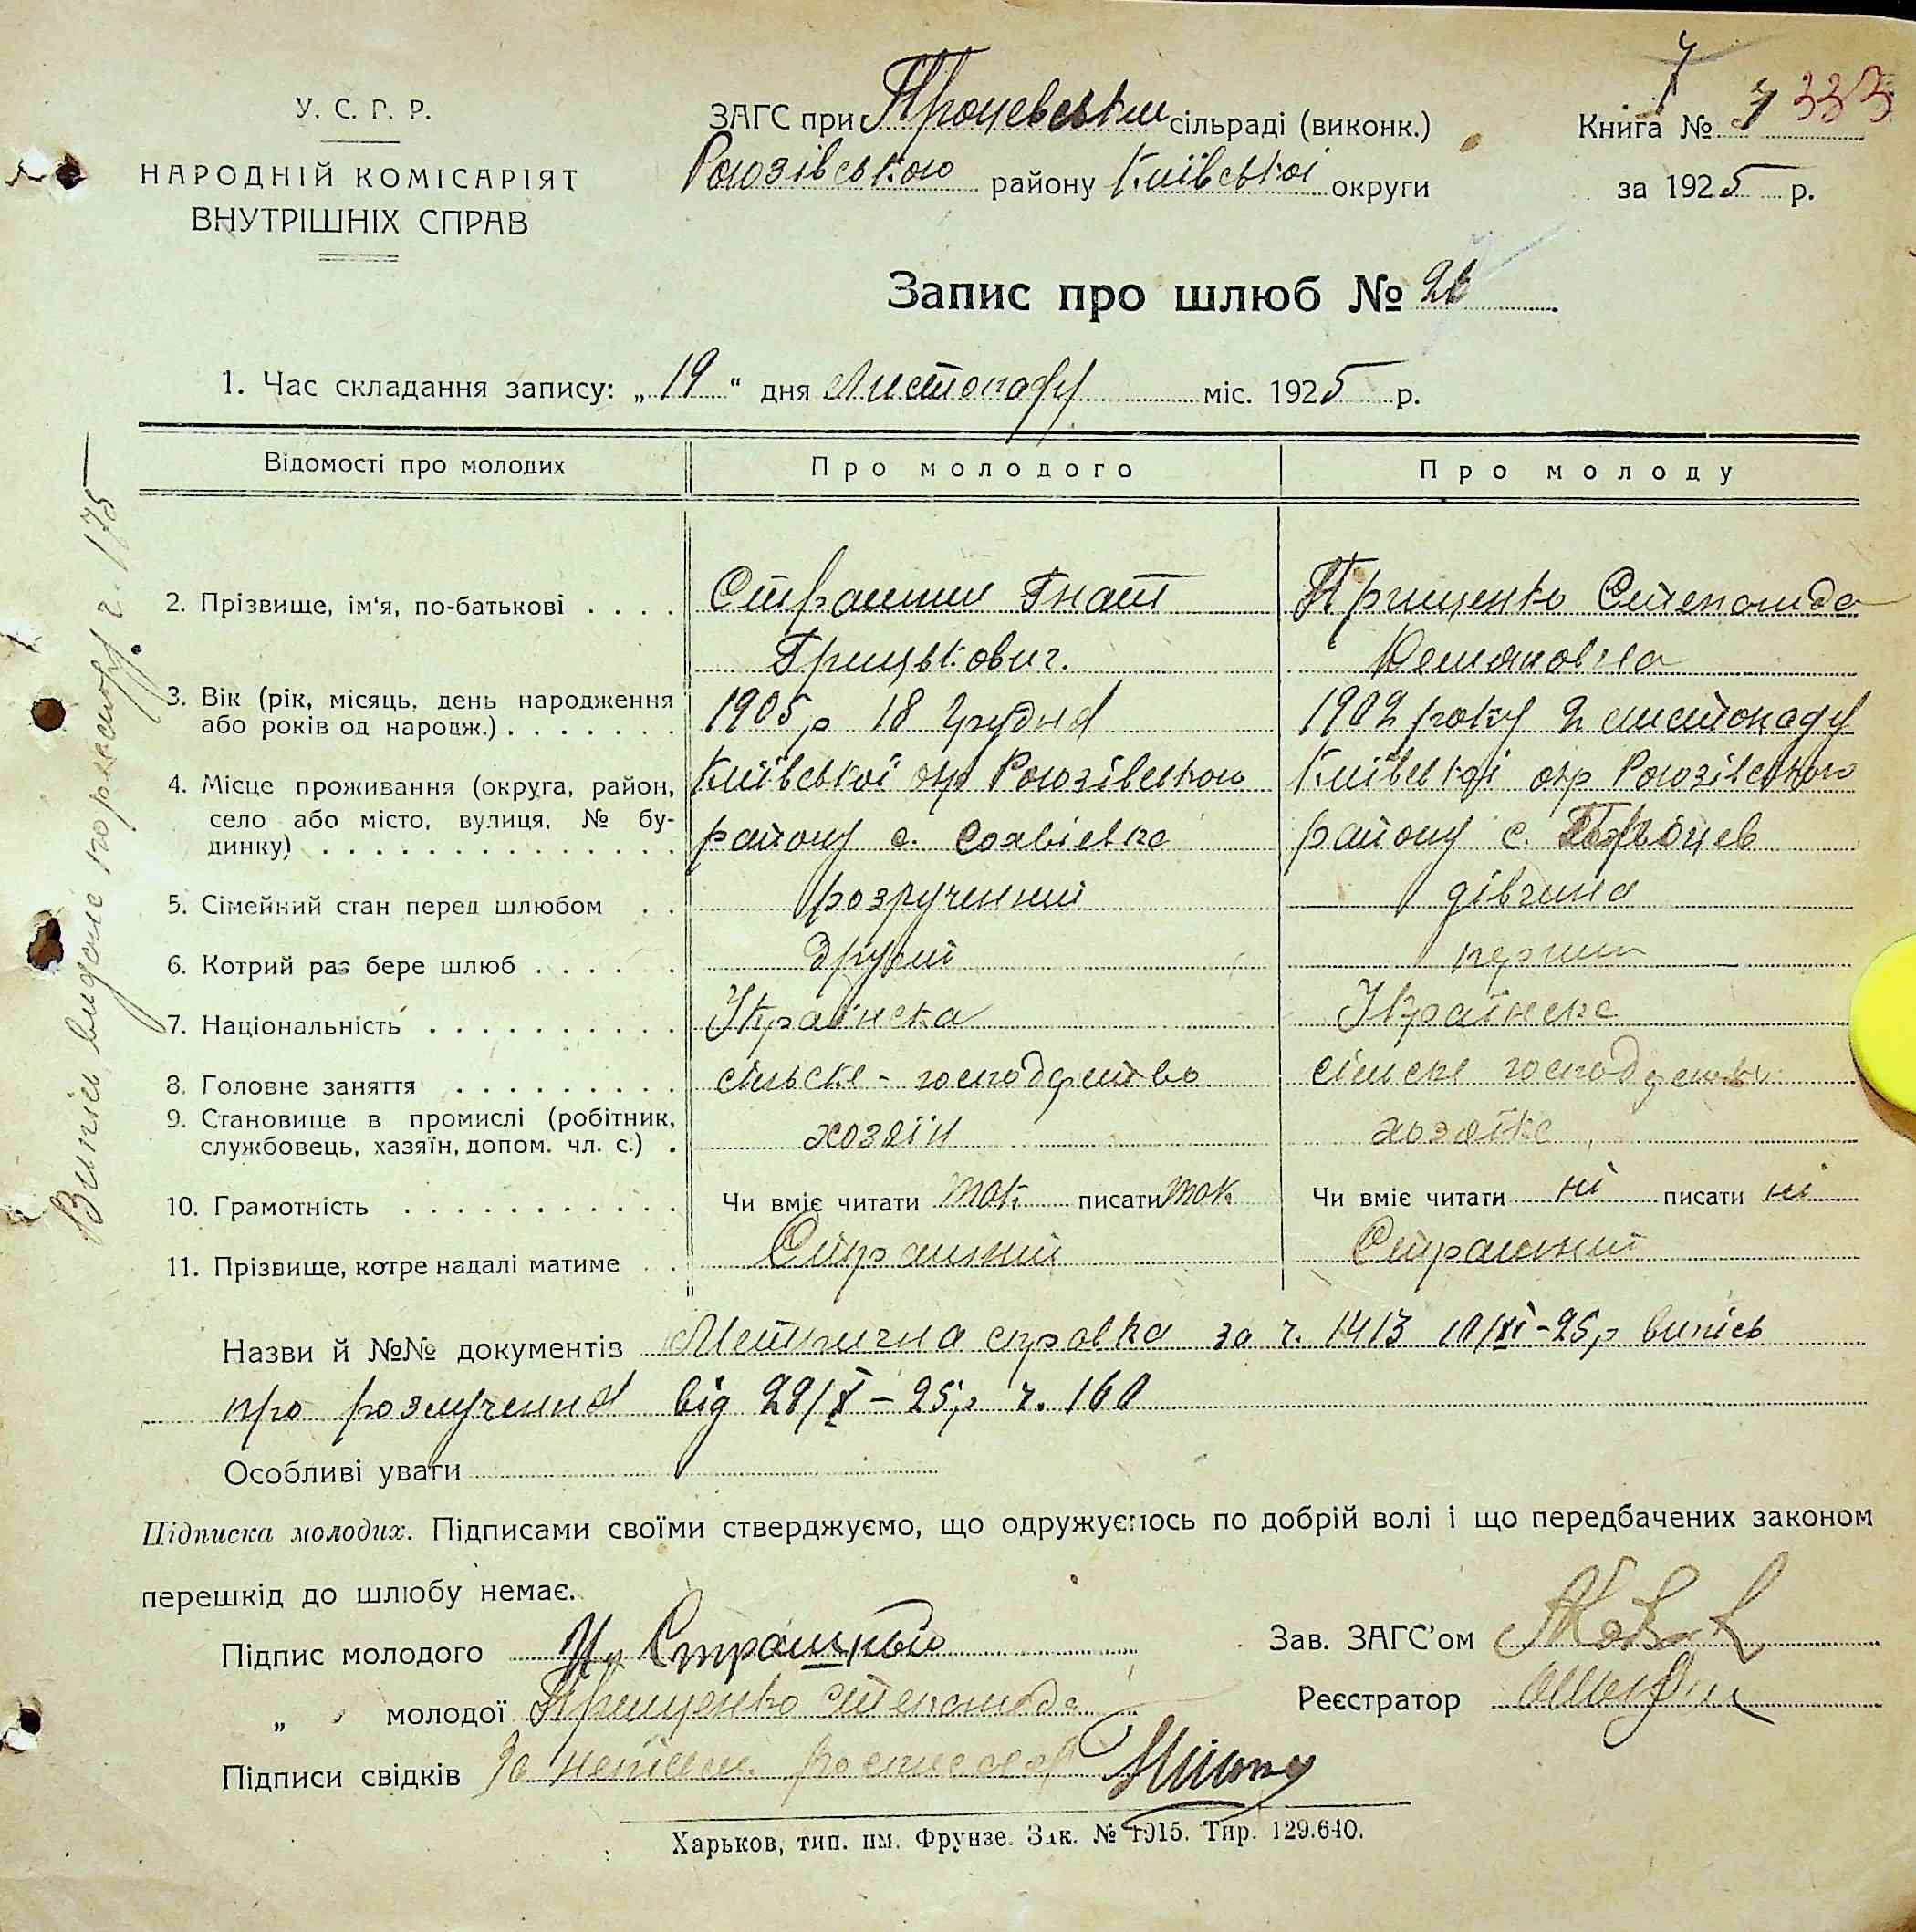 У. С. Р. Р.
НАРОДНІЙ КОМІСАРІЯТ
ВНУТРІШНІХ СПРАВ
ЗАГС при Процевський сільраді (виконк.)
Рогозівського району Київської округи
Книга № 7 333
за 1925 р.
Запис про шлюб №
1. Час складання запису: „19“ дня Листопаду міс. 1925 р.
Відомості про молодих Про молодого Про молоду
2. Прізвище, ім‘я, по-батькові . . . . Страшний Гнат Грицькович. Грищенко Степанида Демяновна
3. Вік (рік, місяць, день народження
або років од народж.) . . . . . . . 1905 р 18 Грудня 1902 року 2 листопаду
4. Місце проживання (округа, район,
село або місто, вулиця, № бу-
динку) . . . . . . . . . . . . . . Київської окр Рогозівського району с. Софіевка Київської окр Рогозівського району с. Процев
5. Сімейний стан перед шлюбом . . розлученний дівчина
6. Котрий раз бере шлюб . . . . . другий перший
7. Національність . . . . . . . . . . Українска Українска
8. Головне заняття . . . . . . . . . сільске - господарство сільске господарство
9. Становище в промислі (робітник,
службовець, хазяїн, допом. чл. с.) . хозяїн хозяйка
10. Грамотність . . . . . . . . . . . Чи вміє читати так писати так Чи вміє читати ні писати ні
11. Прізвище, котре надалі матиме . . Страшний Страшний
Назви й №№ документів Метрична справка за ч. 1413 XI-25 р випісь
про розлучення від 29/X - 25 р ч. 160
Особливі уваги
Підписка молодих. Підписами своїми стверджуємо, що одружуємось по добрій волі і що передбачених законом
перешкід до шлюбу немає.
Підпис молодого Страшный
„ молодої Грищенко Степанида
Підписи свідків За неписьм. росписався
Зав. ЗАГС’ом
Реєстратор
Харьков, тип. им. Фрунзе. Зак. № 1915. Тир. 129.640.
Випісь видано по реєстру ч. 175